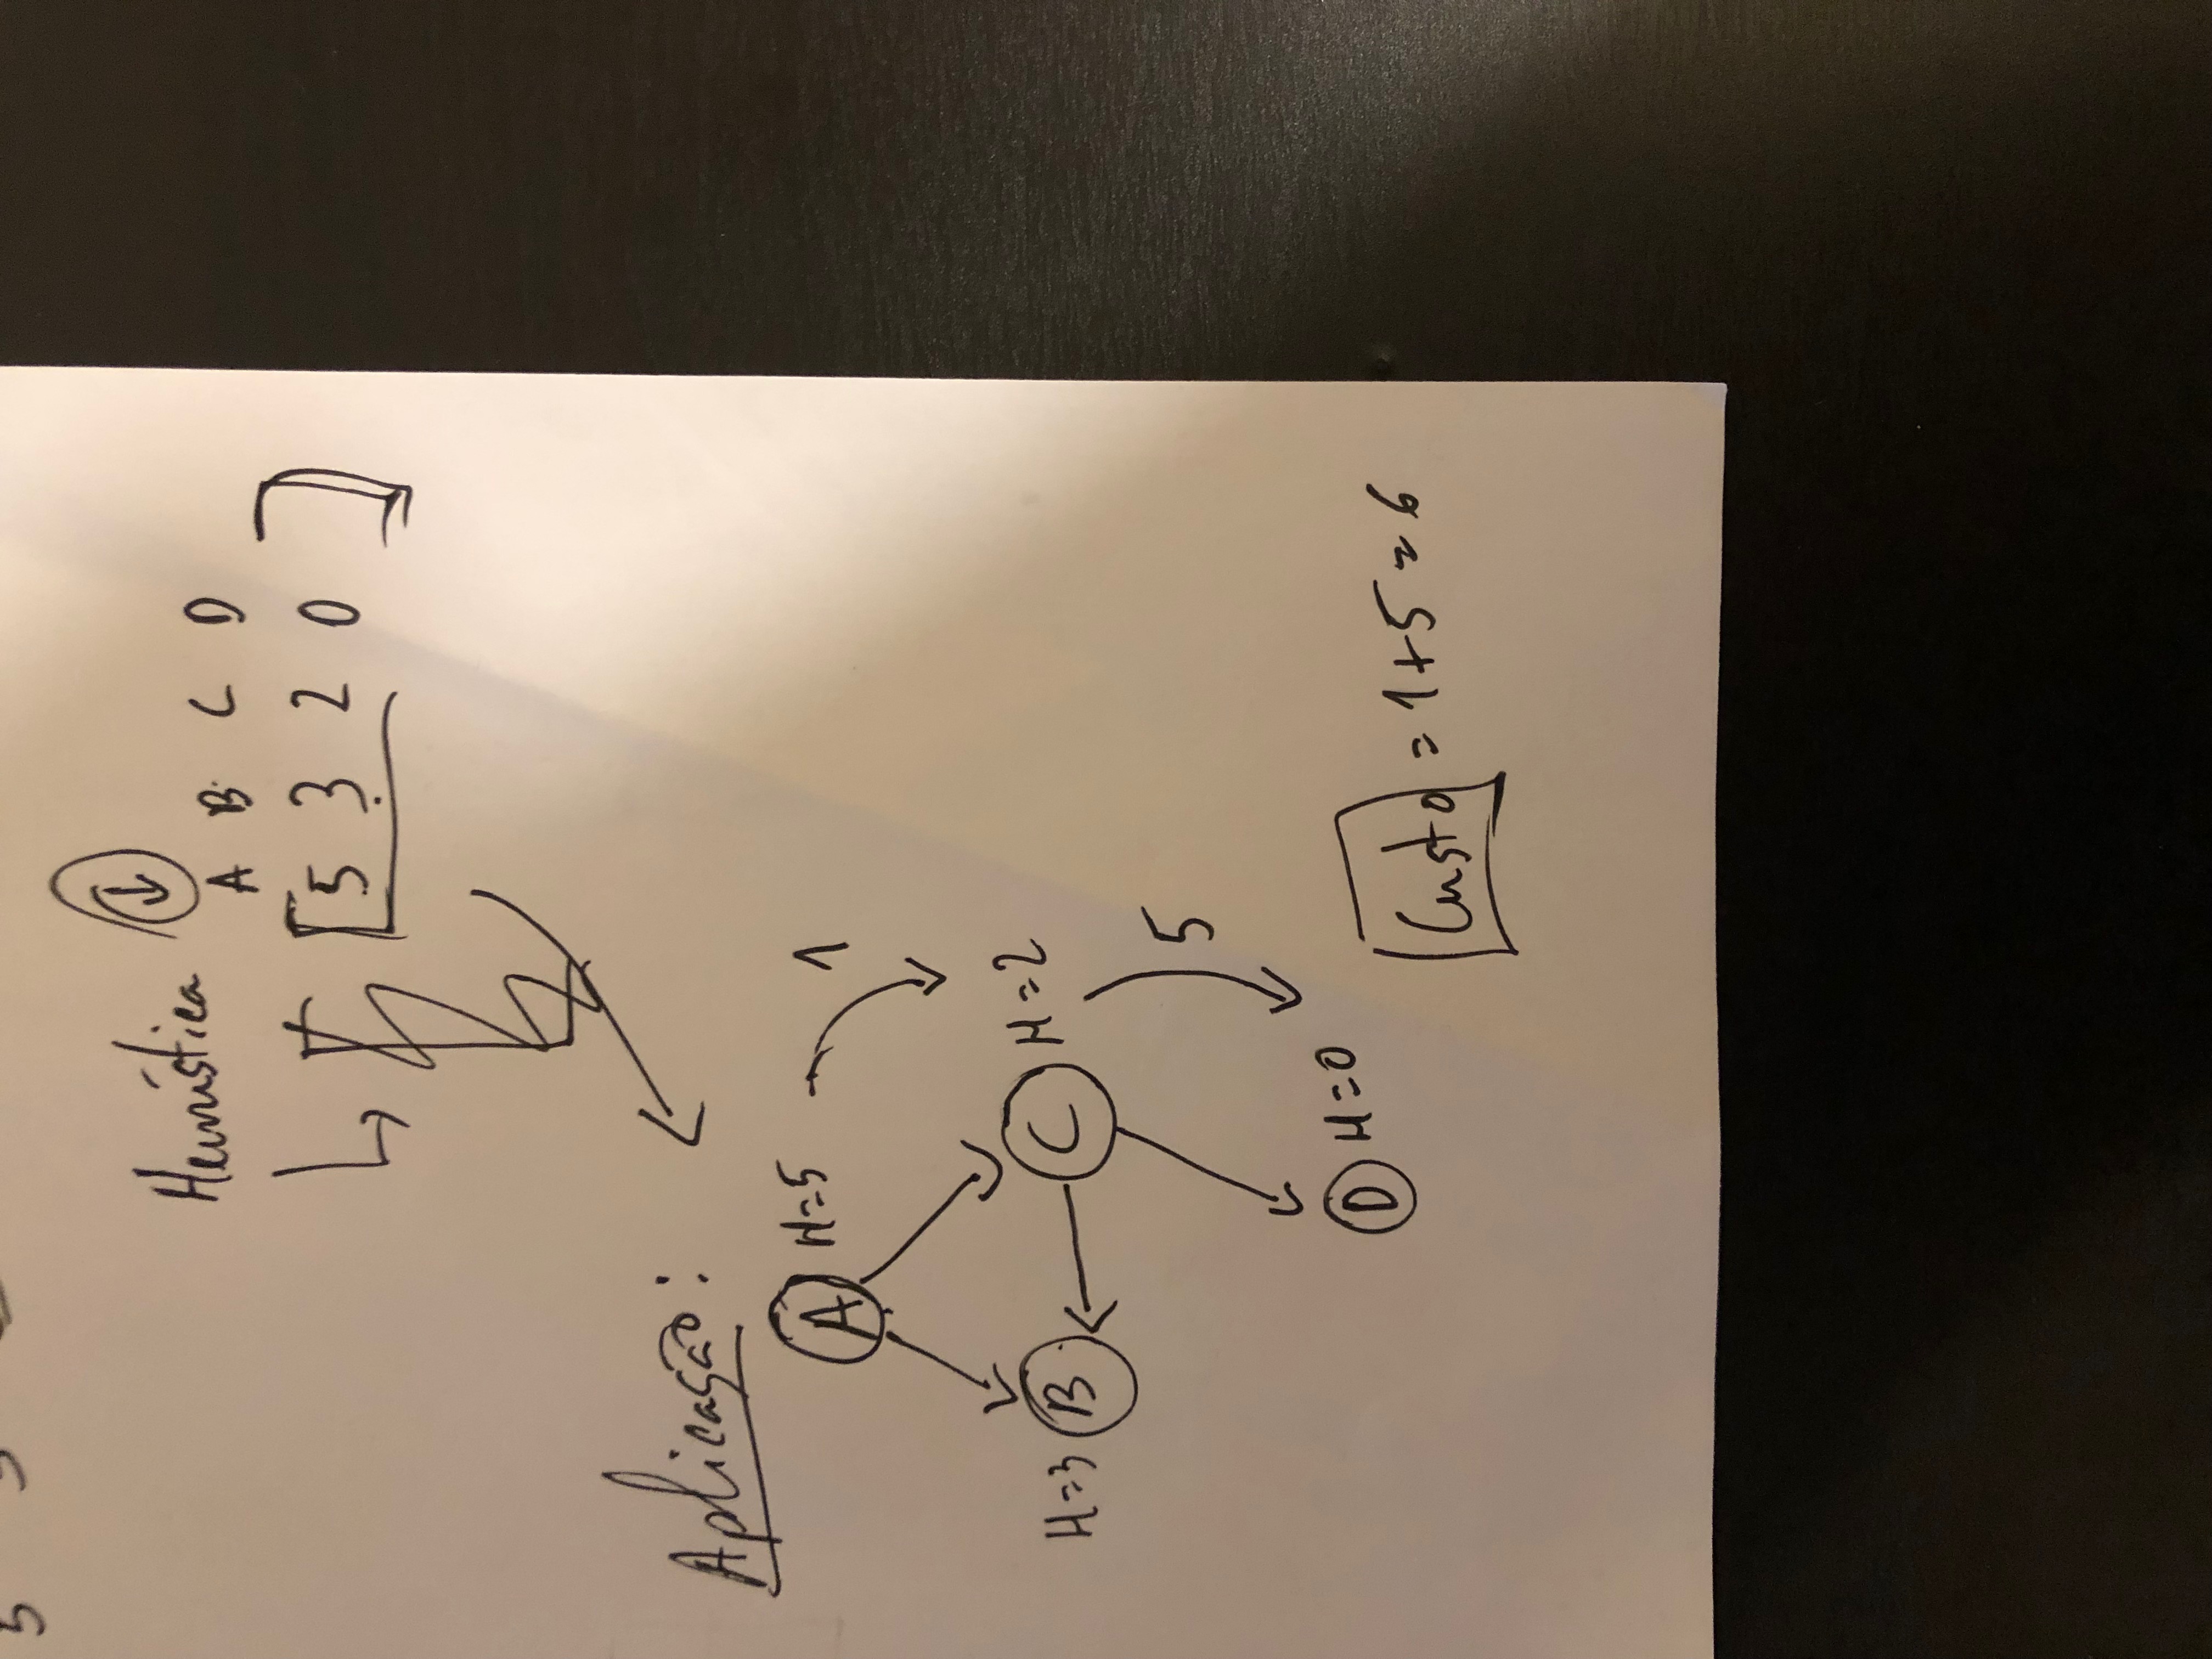 5 3
Heurística ↓
A B C D
[5 3 2 0]
Aplicação:
A H=5 1
H=3 B C H=2
5
D H=0
Custo = 1+5 = 6